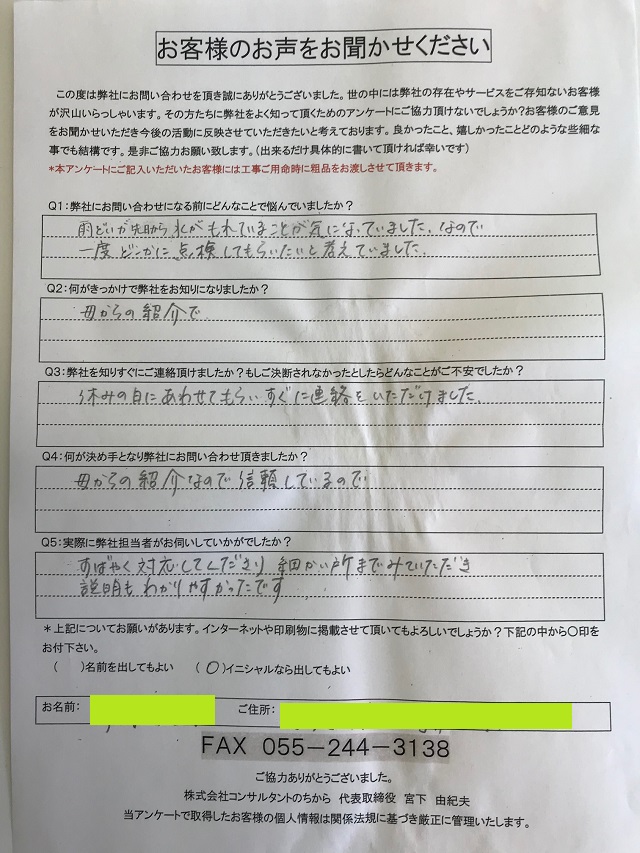 お客様のお声をお聞かせください
この度は弊社にお問い合わせを頂き誠にありがとうございました。世の中には弊社の存在やサービスをご存知ないお客様
が沢山いらっしゃいます。その方たちに弊社をよく知って頂くためのアンケートにご協力頂けないでしょうか?お客様のご意見
をお聞かせいただき今後の活動に反映させていただきたいと考えております。良かったこと、嬉しかったことどのような些細な
事でも結構です。是非ご協力お願い致します。(出来るだけ具体的に書いて頂ければ幸いです)
*本アンケートにご記入いただいたお客様には工事ご用命時に粗品をお渡しさせて頂きます。
Q1:弊社にお問い合わせになる前にどんなことで悩んでいましたか?
雨どいが 先から 水がもれていることが気になっていました。なので
一度 どこかに 点検してもらいたいと考えていました。
Q2:何がきっかけで弊社をお知りになりましたか?
母からの紹介で
Q3:弊社を知りすぐにご連絡頂けましたか?もしご決断されなかったとしたらどんなことがご不安でしたか?
休みの日にあわせてもらいすぐに連絡をいただけました。
Q4:何が決め手となり弊社にお問い合わせ頂きましたか?
母からの紹介なので信頼しているので
Q5:実際に弊社担当者がお伺いしていかがでしたか?
すばやく対応してくださり 細かい所までみていただき
説明もわかりやすかったです
*上記についてお願いがあります。インターネットや印刷物に掲載させて頂いてもよろしいでしょうか?下記の中から〇印を
お付下さい。
( )名前を出してもよい (○)イニシャルなら出してもよい
お名前: ご住所:
FAX 055-244-3138
ご協力ありがとうございました。
株式会社コンサルタントのちから 代表取締役 宮下 由紀夫
当アンケートで取得したお客様の個人情報は関係法規に基づき厳正に管理いたします。